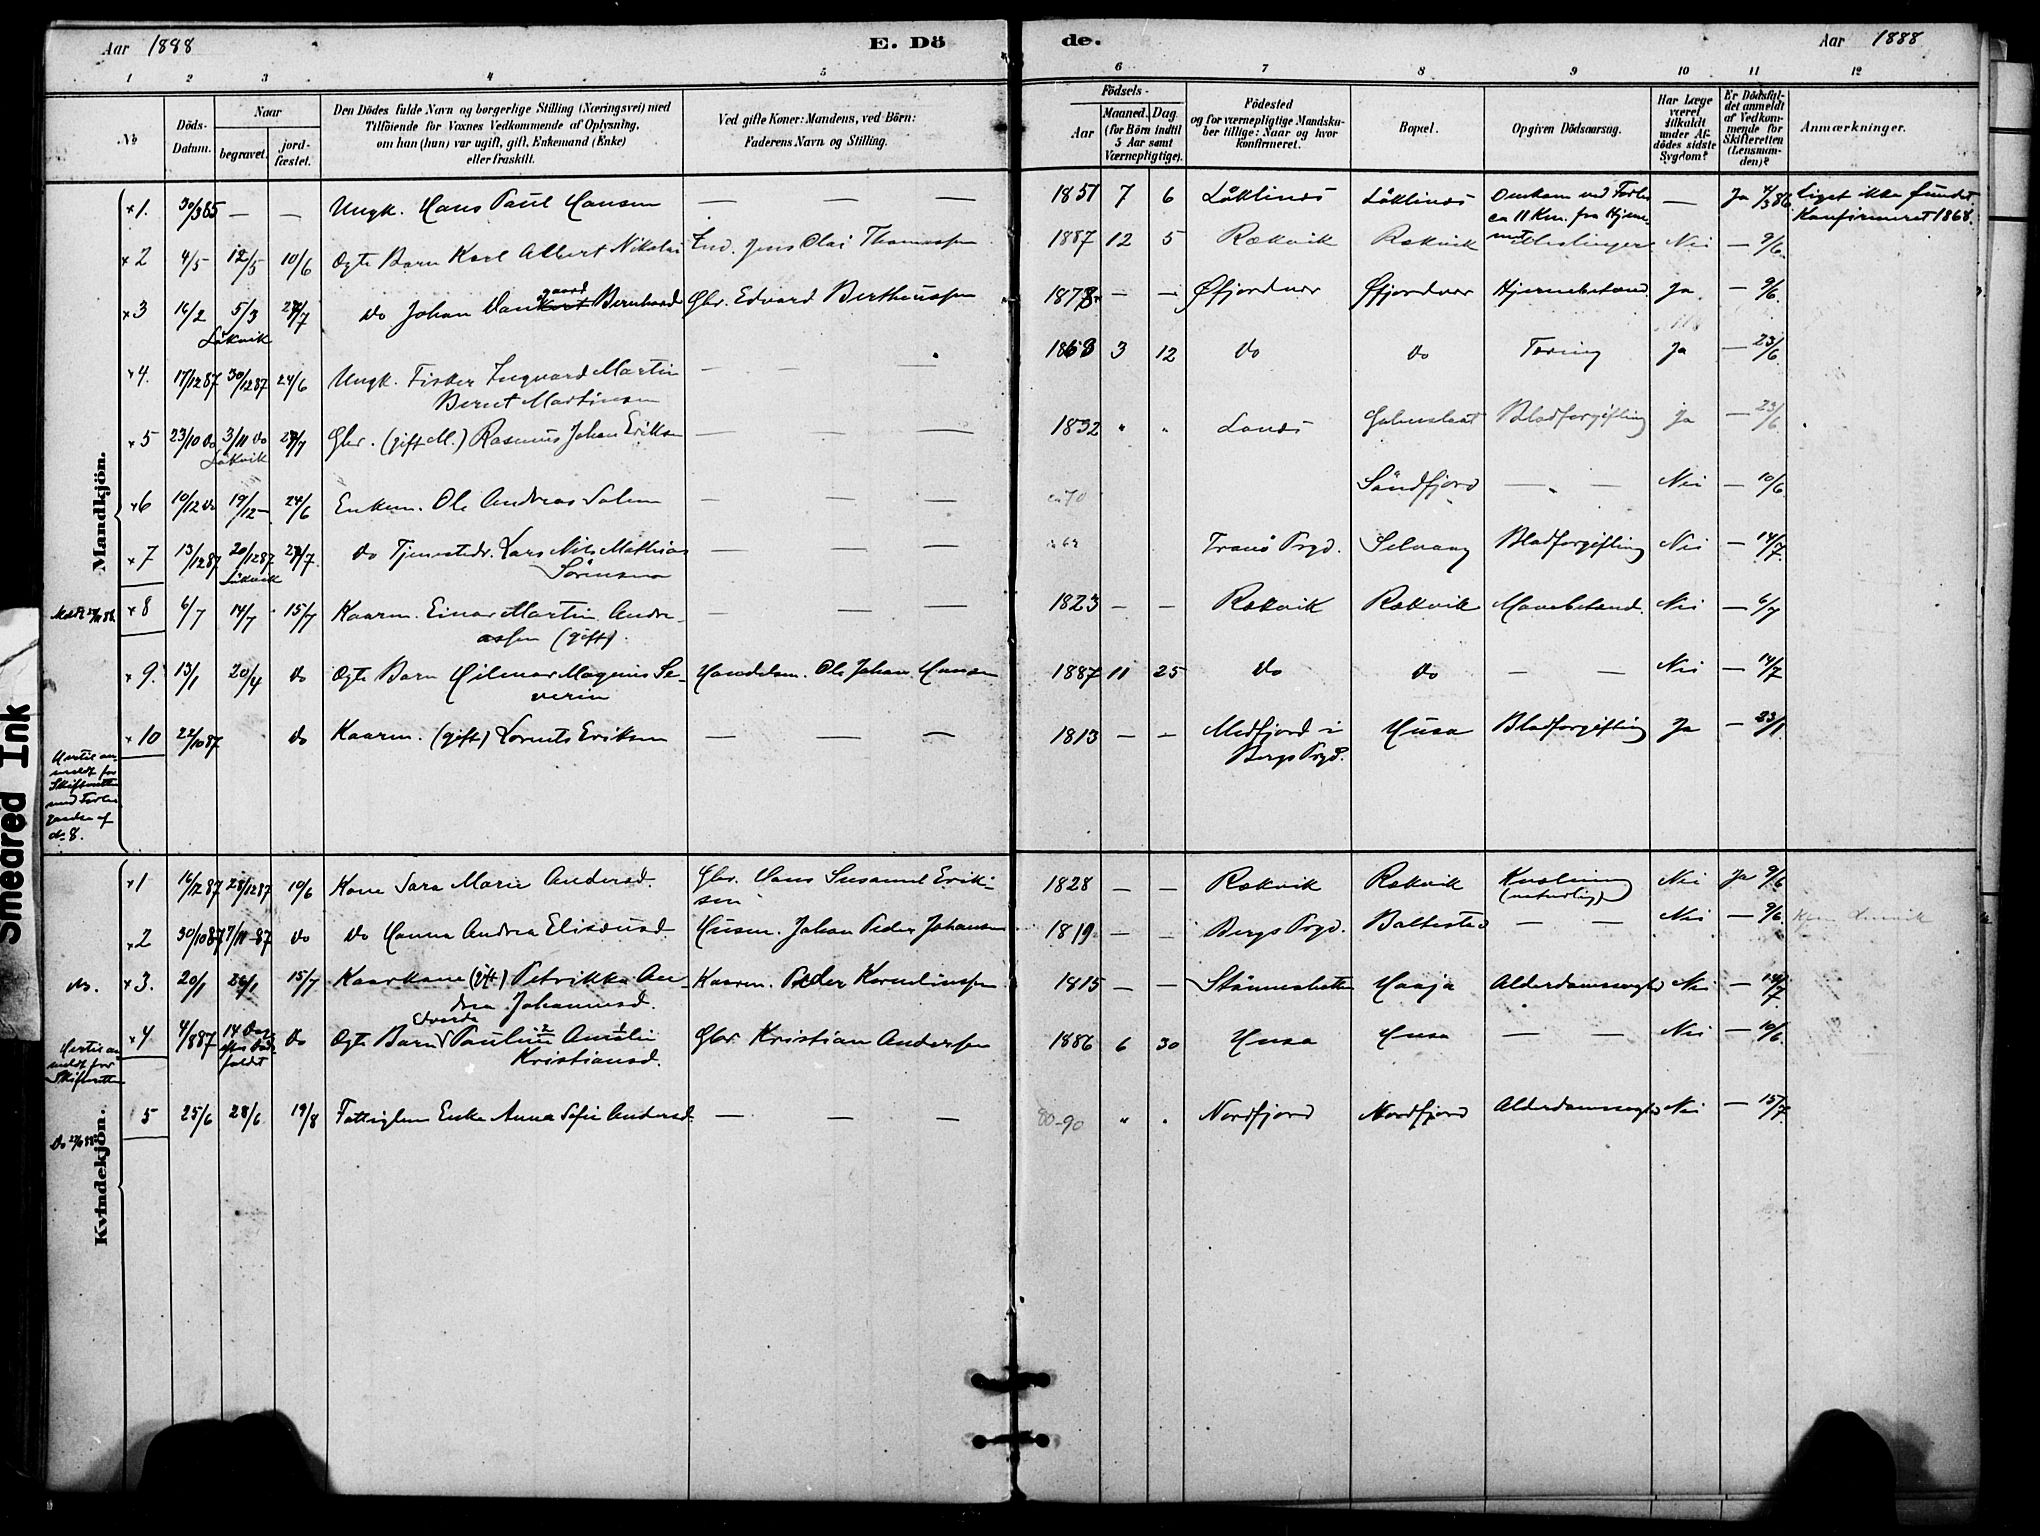 Aar 1888
E. Dö
de.
Aar 1888
1 2 3 4 5 6 7 8 9 10 11 12
No
Döds-Datum.
Naar
begravet.
jord-fæstet.
Den Dödes fulde Navn og borgerlige Stilling (Næringsvei) med
Tilföiende for Voxnes Vedkommende af Oplysning,
om han (hun) var ugift, gift, Enkemand (Enke)
eller fraskilt.
Ved gifte Koner: Mandens, ved Börn:
Faderens Navn og Stilling.
Födsels-
Aar
Maaned. Dag.
(for Börn indtil
5 Aar samt
Værnepligtige).
Födested
og for værnepligtige Mandska-
ber tillige: Naar og hvor
konfirmeret.
Bopæl.
Opgiven Dödsaarsag.
Har Læge
været
tilkaldt
under Af-
dödes sidste
Sygdom?
Er Dödsfal-
det anmeldt
af Vedkom-
mende for
Skifteretten
(Lensman-
den)?
Anmærkninger.
Mandkjön.
×1. 30/3 85 — — Ungk. Hans Paul Hansen — — — 1851 7 6 Löklines Löklines Omkom ved Forlis — Ja 4/3 86 Liget ikke fundet.
ca 11 Km. fra Hjem- Konfirmeret 1868.
×2 4/5 12/5 10/6 Ægte Barn Karl Albert Nikolai Ind. Jens Olai Thomassen 1887 12 5 Rækvik Rækvik Meslinger Nei — 9/6
×3 16/2 5/3 /7 do Johan Dankert gaard Bernhard Gbr. Edvard Bertheussen 1878 — — Øfjordvær Øfjordvær Hjernebetænd. Ja — 9/6
Lökvik
×4. 17/12 87 30/12 87 24/6 Ungk. Fisker Ingvard Martin — — — 1868 3 12 do do Tæring Ja — 23/6
Bernt Martinsen
×5 23/10 do 3/11 do /7 Gbr. (gift M.) Rasmus Johan Eriksen — — — 1832 " " Lands Blodforgiftning Ja — 23/6
Lökvik
×6 10/12 do 19/12 — 24/6 Enkem. Ole Andreas Salen — — — 70 Söndfjord — " — Nei — 10/6
×7 13/12 87 20/12 87 /7 do Tjenestedr. Lars Nils Mathias — — — Tranö Prgd. Selvaag Blodforgiftning Nei — 14/7
Lökvik Sörensen
×8 6/7 14/7 15/7 Kaarm. Einar Martin Andre- — — — 1823 — — Rækvik Rækvik Mavebetænd. Nei — 6/7
assen (gift).
×9. 13/1 20/4 do Ægte Barn Hilmar Magnus Se- Handelsm. Ole Johan Hansen 1887 11 25 do do — — Nei — 14/7
verin
×10 22/10 87 do Kaarm. (gift) Lornts Eriksen — — — 1813 — — Medfjord i Husø Blodforgiftning Ja — 23/1
Bergs Prgd.
Hertil an-
meldt for
Skifteretten
med Forbi-
gaaelse af
No 8.
Kvindekjön.
×1 16/12 87 28/12 87 10/6 Kone Sara Marie Andersd. Gbr. Hans Susannel Erik- 1828 — — Rækvik Rækvik Kvælning Nei Ja 9/6
sen (naturlig)
×2 30/10 87 7/11 87 do do Hanna Andrea Elisæusd. Husm. Johan Peder Johansen 1819 — — Bergs Prgd. Baltestad — — Nei — 9/6
×3. 20/1 26/1 15/7 Kaarkone (gft) Petrikka An- Kaarm. Peder Korneliussen 1815 — — Stönnesbotten Haaja Alderdomssvaghd Nei — 14/7
drea Johannesd.
×4 4/8 87 14 Dage efter Döds- faldet do Ægte Barn Edvarda Pauline Amalie Gbr. Kristian Andersen 1886 6 30 Husø Husø — — Nei — 10/6
Kristiansd.
Hertil an-
meldt for
Skifteretten
5 25/6 28/6 19/8 Fattiglem Enke Anna Sofie Andersd. — — — 80-90 " " Nordfjord Nordfjord Alderdomssvaghd Nei — 15/7
Smeared Ink